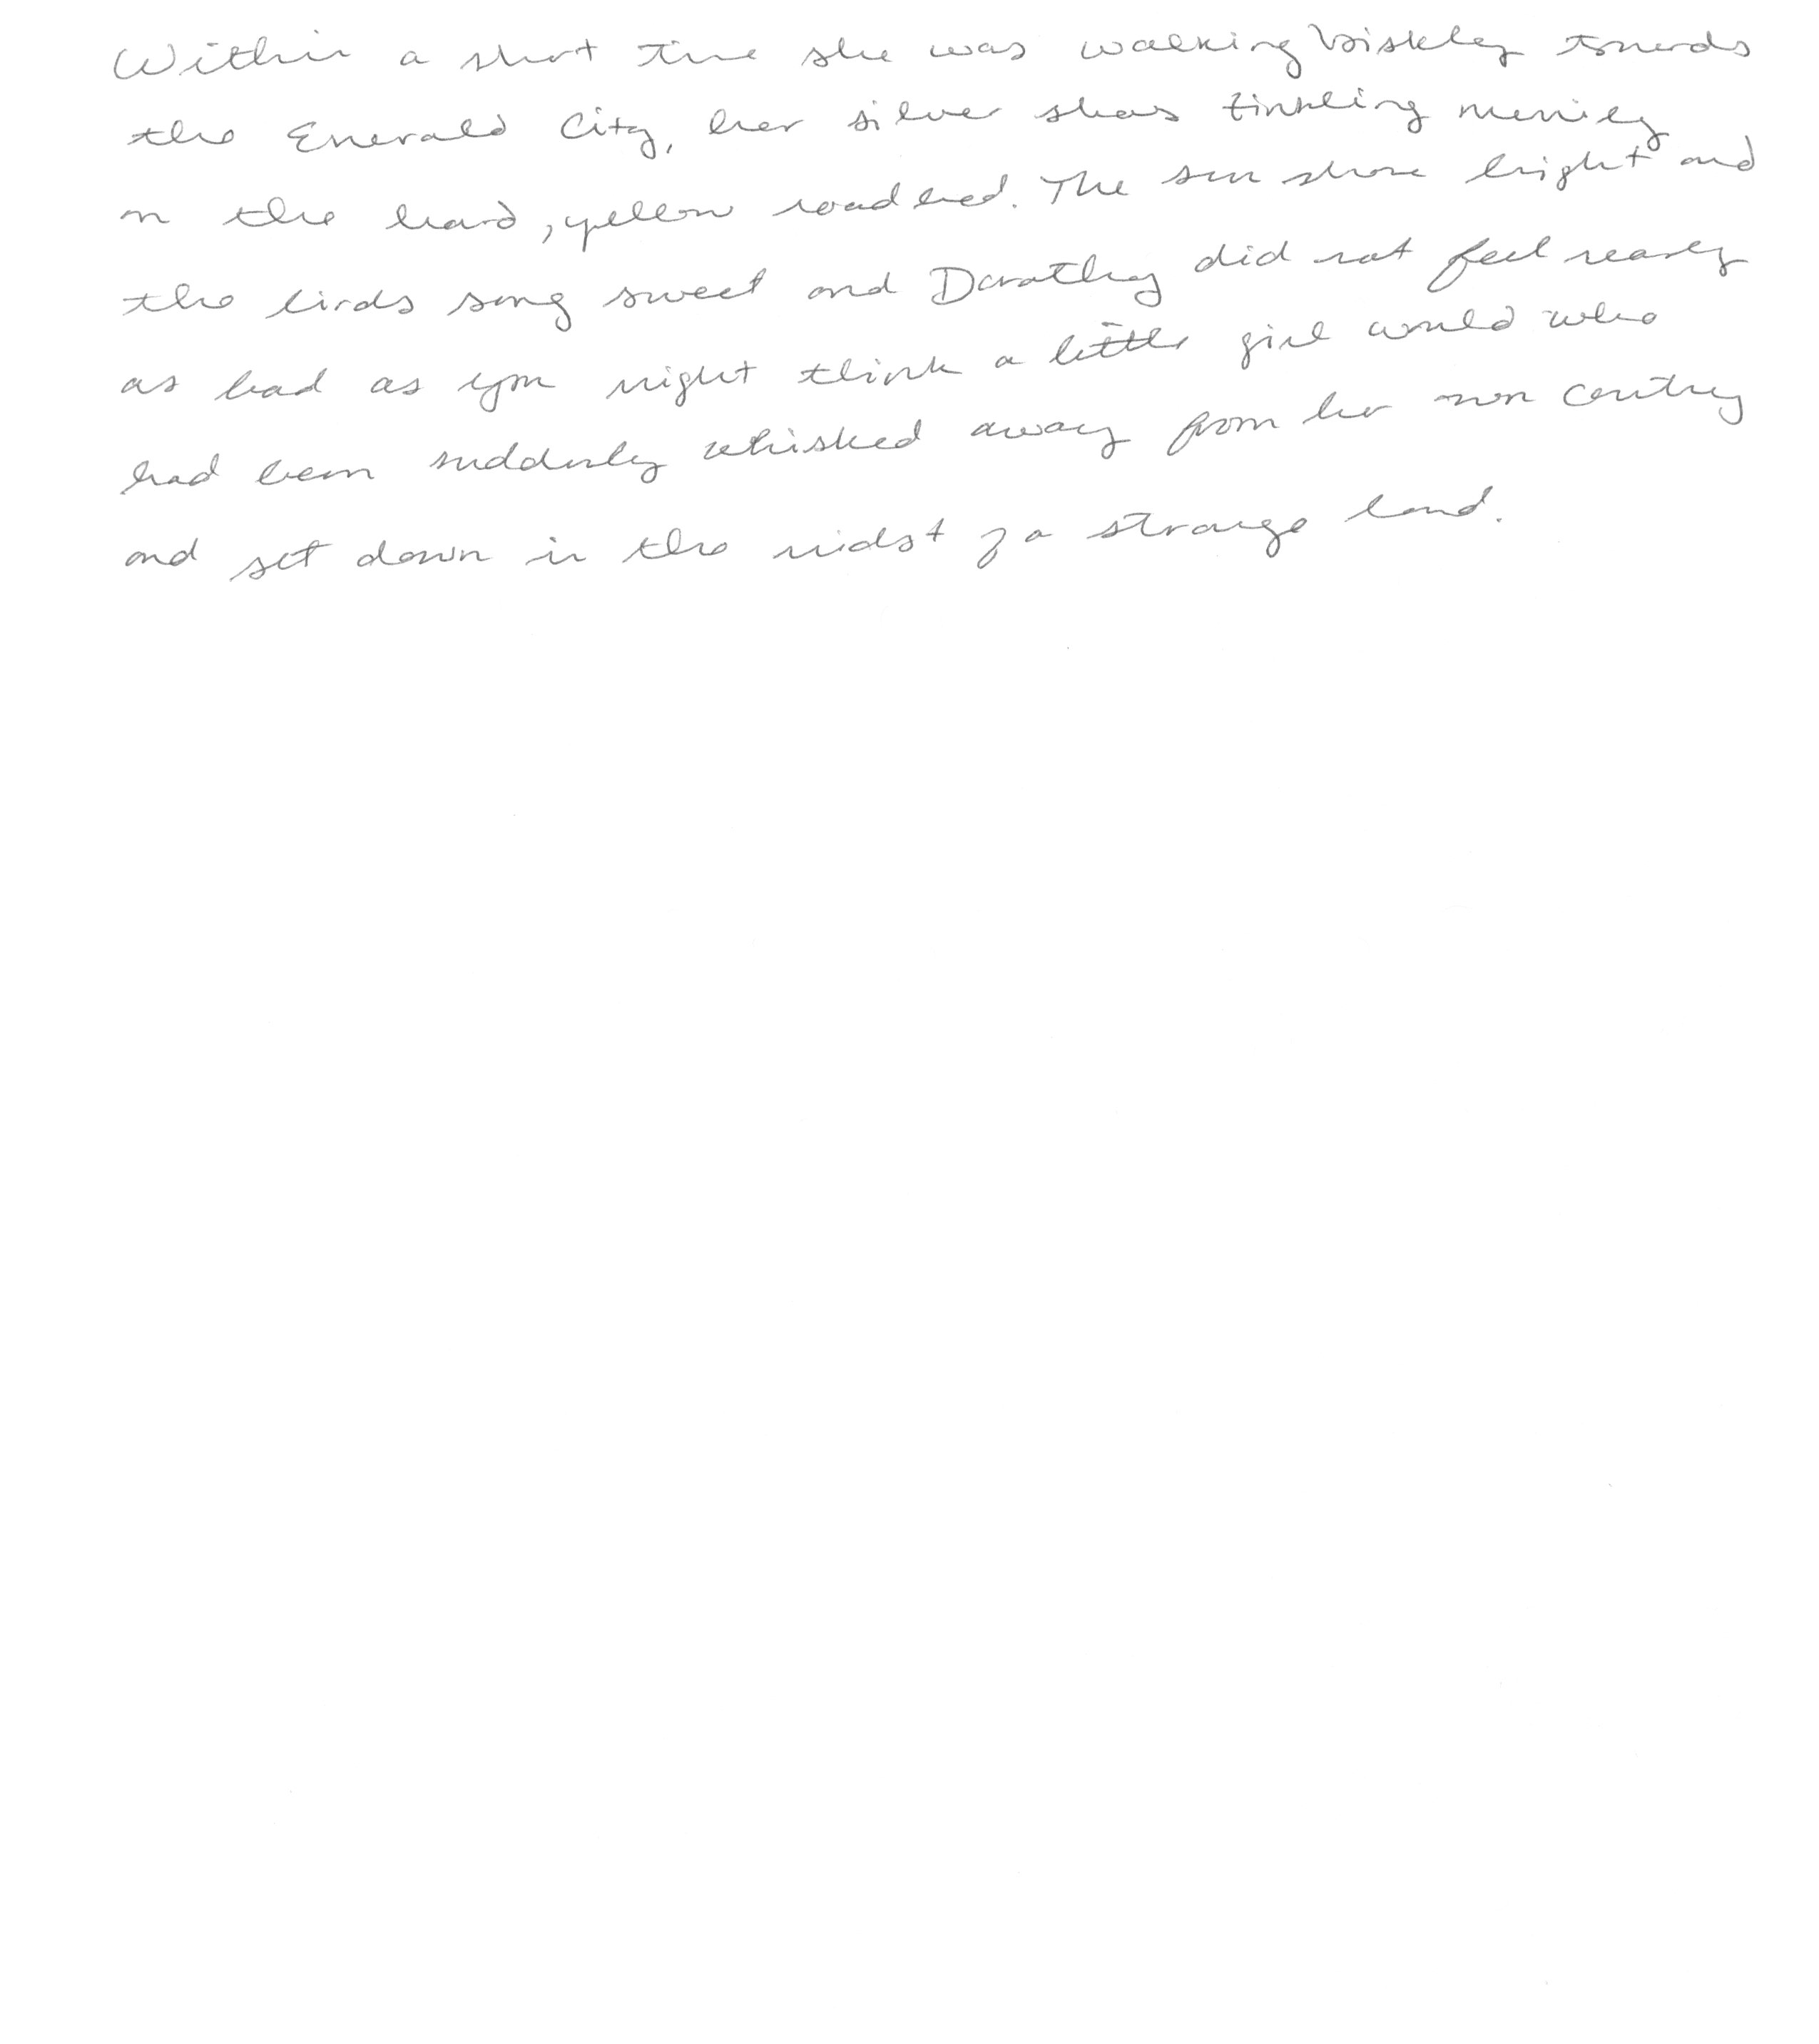 Within a short time she was walking briskly towards
the Emerald City, her silver shoes tinkling merrily
on the hard, yellow roadbed. The sun shone bright and
the birds sang sweet and Dorothy did not feel nearly
as bad as you might think a little girl would who
had been suddenly whisked away from her own country
and set down in the midst of a strange land.